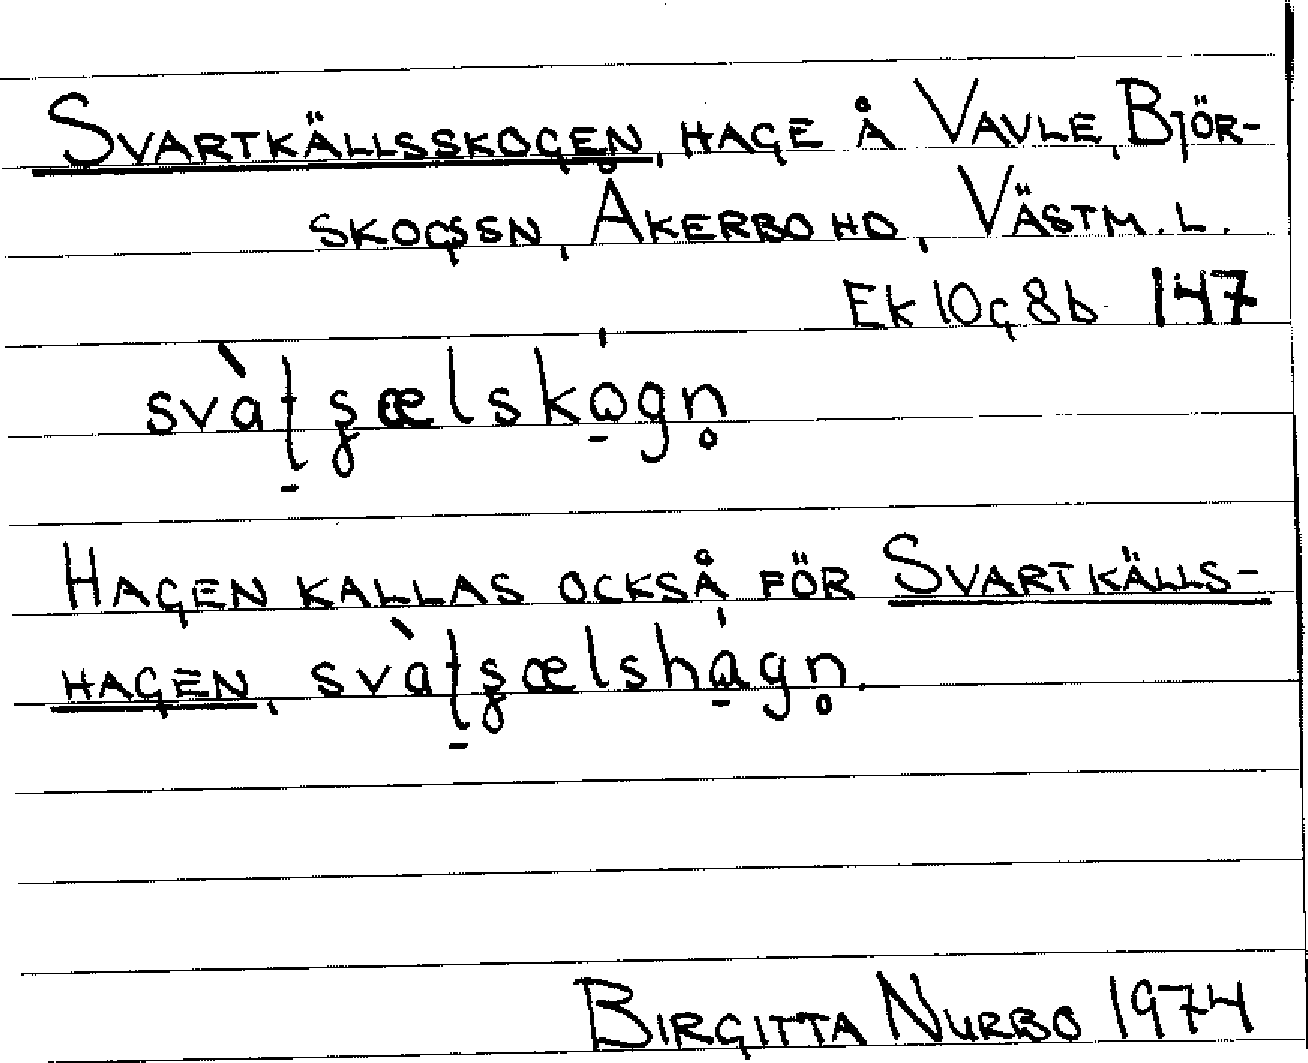 Svartkällsskogen, hage å Vavle, Björ-
skogssn, Åkerbo hd, Västm. l.
Ek 10g 8b 147
Hagen kallas också för Svartkälls-
hagen,
Birgitta Nurbo 1974